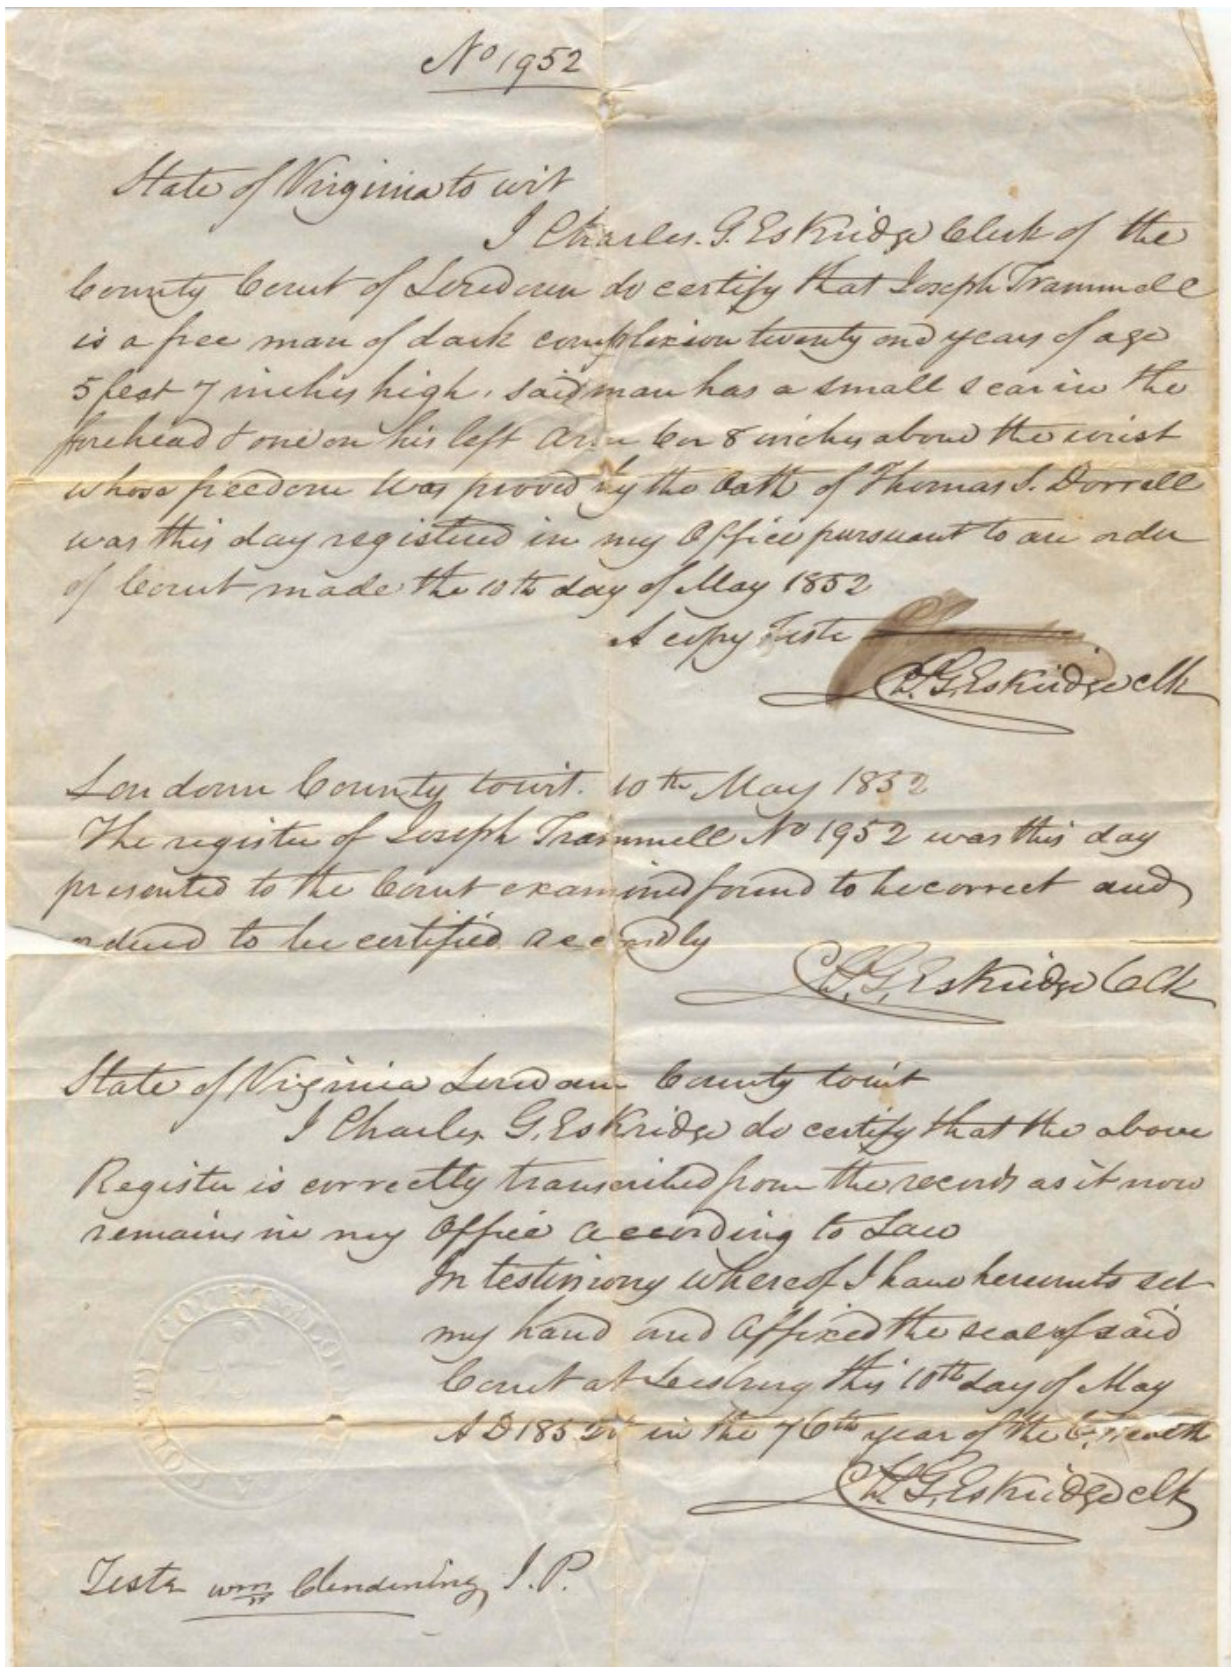 No 1952
State of Virginia to wit
I Charles. G. Eskridge Clerk of the
County Court of Loudoun do certify that Joseph Trammell
is a free man of dark complexion twenty one years of age
5 feet 7 inches high, said man has a small scar in the
forehead & one on his left arm 6 or 8 inches above the wrist
whose freedom was proved by the Oath of Thomas S. Dorrell
was this day registered in my Office pursuant to an order
of Court made the 10th day of May 1852
A copy Teste
Ch. G. Eskridge clk
Loudoun County towit. 10th May 1852
The register of Joseph Trammell No 1952 was this day
presented to the Court examined found to be correct and
ordered to be certified accordly
Ch. G. Eskridge Clk
State of Virginia Loudoun County towit
I Charles G. Eskridge do certify that the above
Register is correctly transcribed from the records as it now
remains in my Office according to Law
In testimony whereof I have hereunto set
my hand and affixed the seal of said
Court at Leesburg this 10th day of May
AD 1852 in the 76th year of the
Ch. G. Eskridge clk
Teste Wm Clendening J. P.
COUNTY COURT LOU